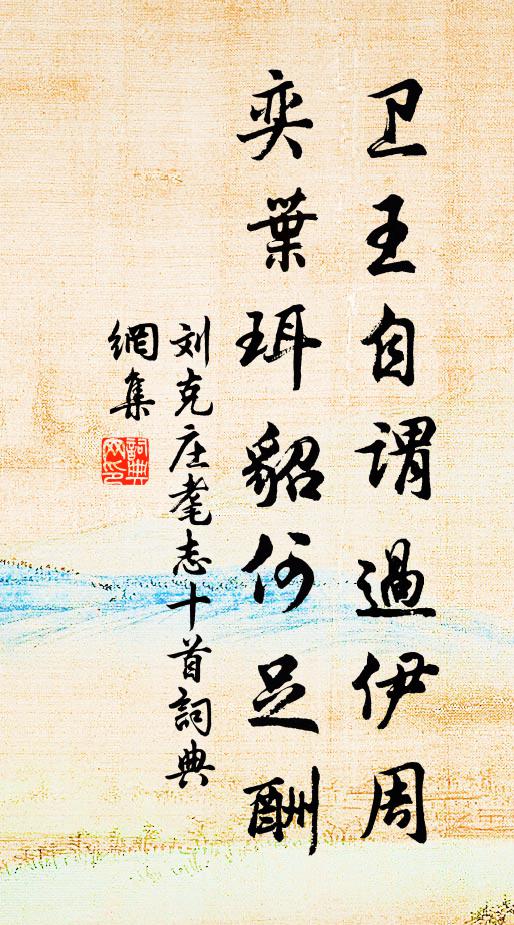 卫王自谓過伊周
奕葉珥貂何足酬
刘克庄耄志十首詞典
網集